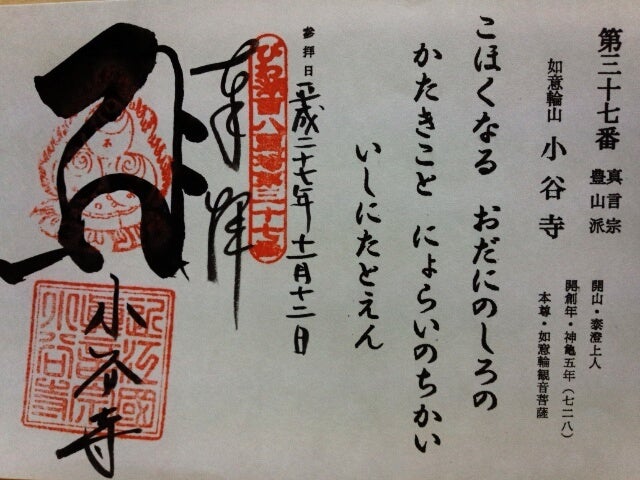 第三十七番
真言宗
豊山派
如意輪山 小谷寺
開山・泰澄上人
開創年・神亀五年(七二八)
本尊・如意輪観音菩薩
こほくなる おだにのしろの
かたきこと にょらいのちかい
いしにたとえん
参拝日 平成二十七年十一月十二日
奉拝
小谷寺